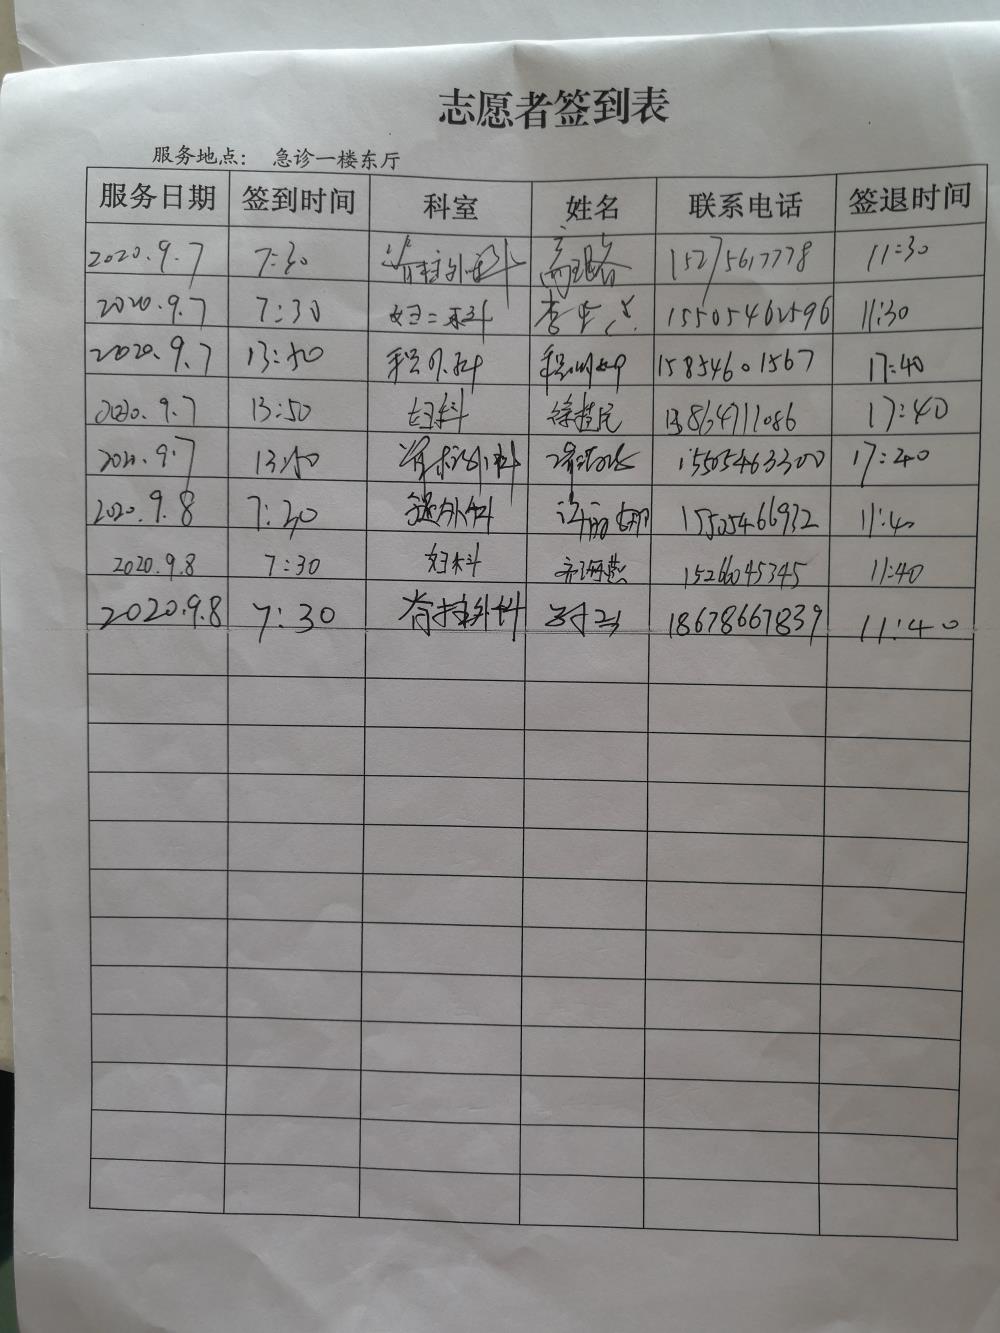 志愿者签到表
服务地点： 急诊一楼东厅
服务日期 签到时间 科室 姓名 联系电话 签退时间
2020.9.7 7:30 脊柱外科 15275617778 11:30
2020.9.7 7:30 妇二科 李 15505462596 11:30
2020.9.7 13:50 外科 15854601567 17:40
2020.9.7 13:50 妇科 徐桂民 13864711086 17:40
2020.9.7 13:50 脊柱外科 15505463300 17:40
2020.9.8 7:30 外科 许丽娜 15505466932 11:40
2020.9.8 7:30 妇科 齐海燕 15266045345 11:40
2020.9.8 7:30 脊柱外科 18678667839 11:40